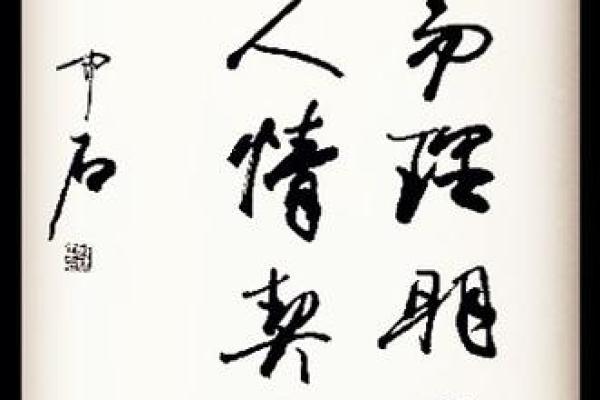 勿理明
人情契
中石